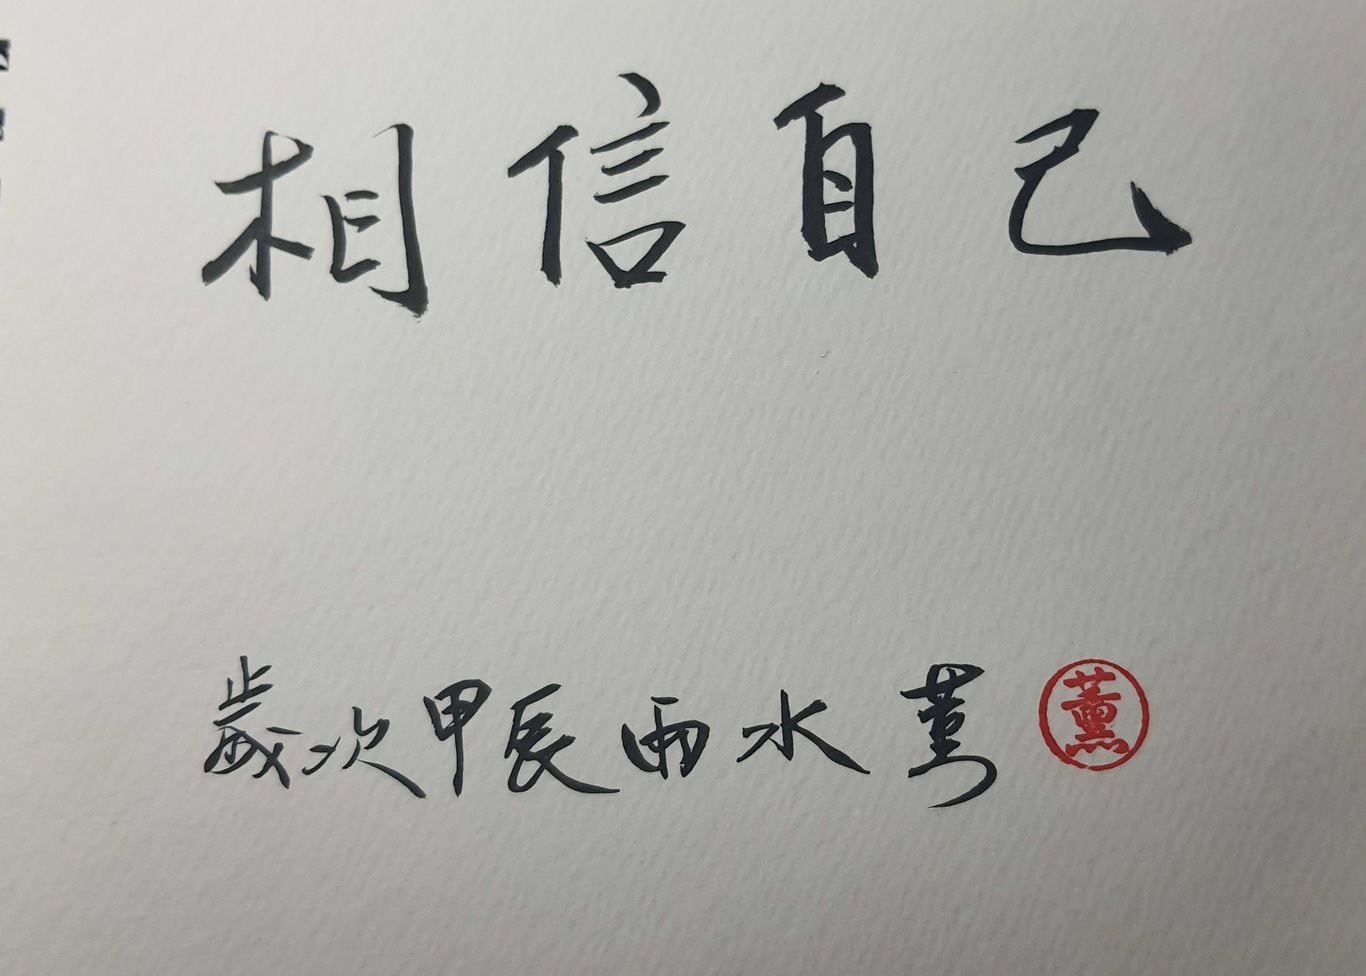 相信自己
歲次甲辰雨水薰 薰